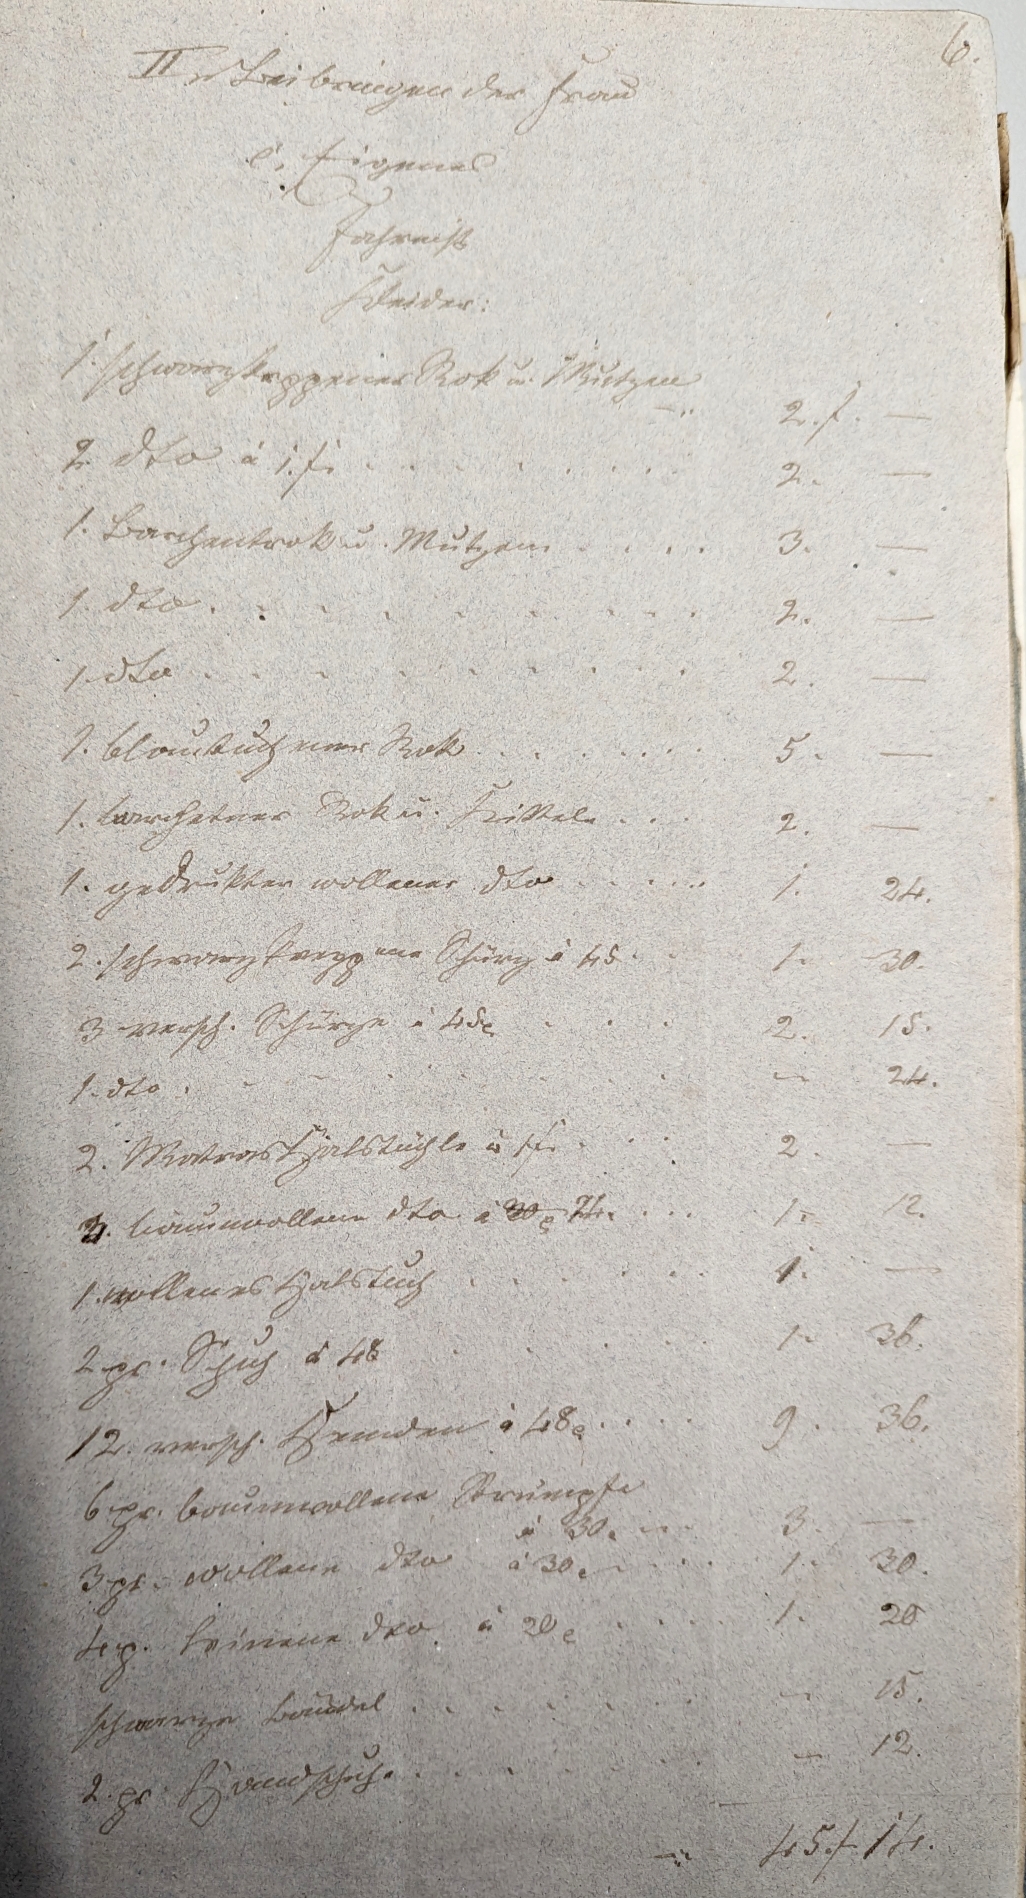 6.
II. Beibringen der Frau
a, Eigenes
Fahrniß
Kleider:
1. schwarz kreppener Rok u. Mutzen
–" 2. f. —
2. dto à 1. f. . . . . . . . . 2. —
1. Barchentrok u. Mutzen . . . . 3. —
1. dto. . . . . . . . . . 2. —
1. dto . . . . . . . . . 2. —
1. blautuchener Rok . . . . . . 5. —
1. barchetner Rok u. Kittel . . . 2. —
1. gedrukter wollener dto . . . . . 1. 24.
2. schwarzkreppene Schürz à 45 . . 1. 30.
3 versch. Schürze à 45 . . . . 2. 15.
1. dto . . . . . . . . – 24.
2. Halstüchle à 1 f. . . . 2. —
3. baumwollene dto à 30 24. . . . 1. 12.
1. wollenes Halstuch . . . . . . 1. —
2 pr. Schuh à 48 . . . . . 1. 36.
12. versch. Hemden à 48 . . . . 9. 36.
6 pr. baumwollene Strümpfe
à 30. – .. 3. —
3 pr. wollene dto à 30 . . . . 1. 30.
4 p. leinene dto à 20 . . . . 1. 20
schwarze Bändel . . . . . . – 15.
2. pr. Handschuh . . . . . . – 12.
–" 45. f. 14.